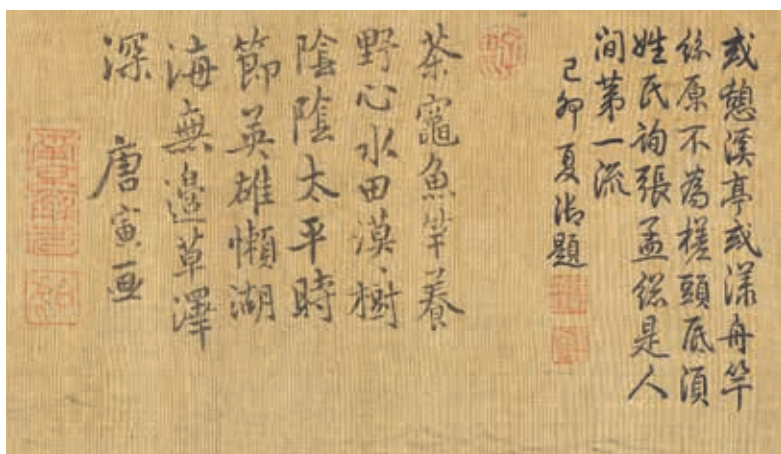 或憩溪亭或漾舟竿
絲原不為槎頭底須
姓氏詢張孟緫是人
間第一流
己卯夏御題
茶竈魚竿養
野心水田漠〻樹
陰陰太平時
節英雄懶湖
海無邊草澤
深 唐寅画